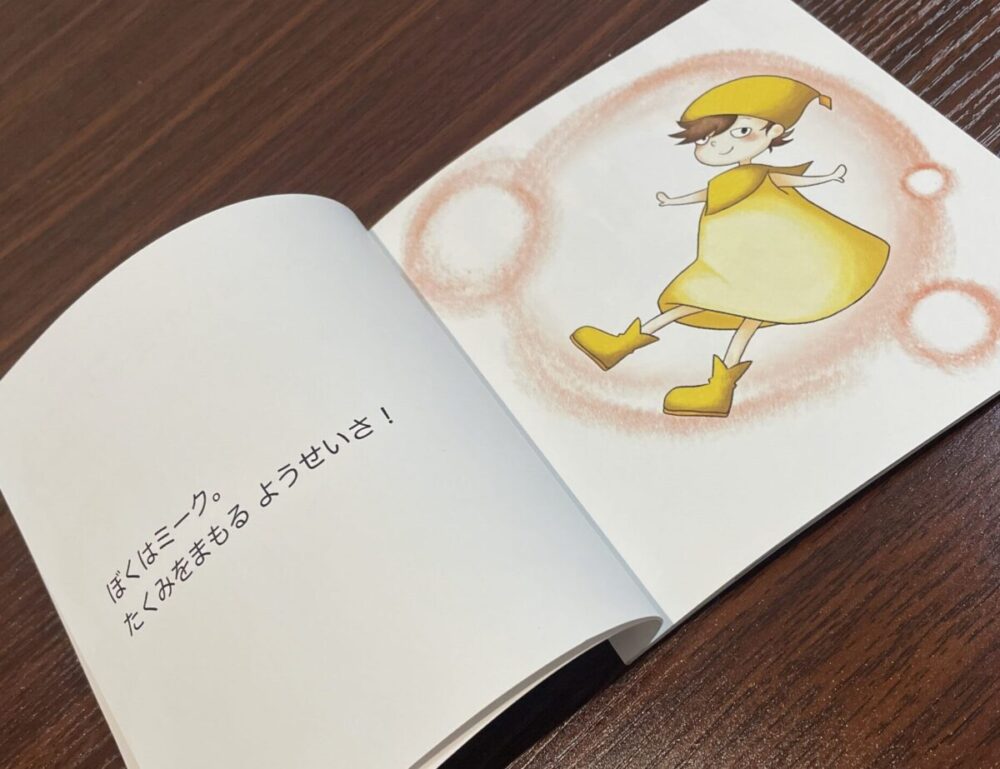 ぼくはミーク。
たくみをまもる ようせいさ！